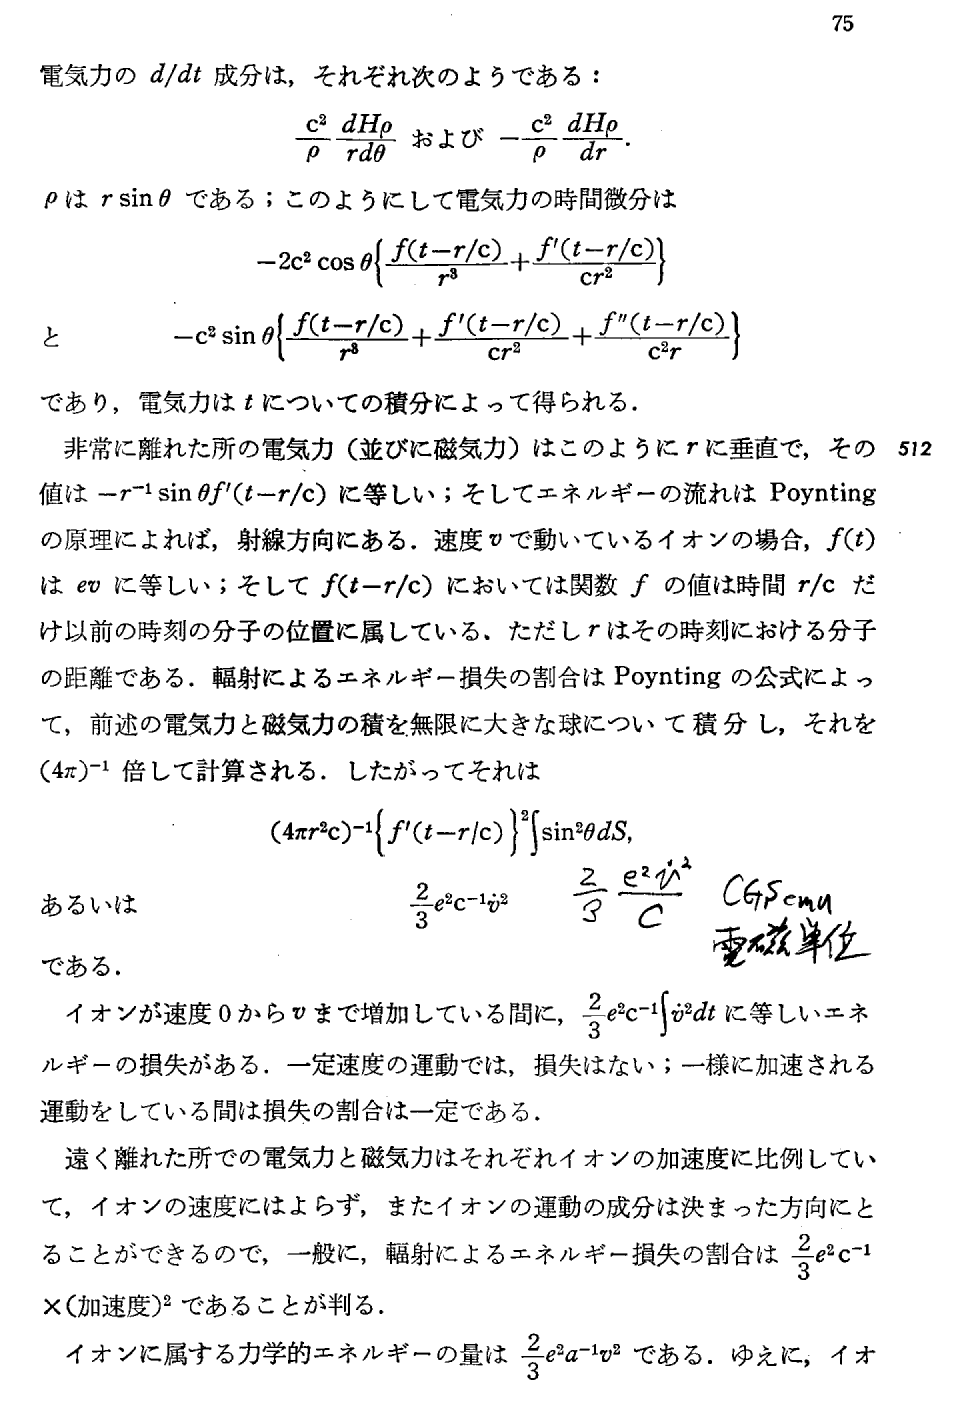 75
電気力の d/dt 成分は，それぞれ次のようである：
c²/ρ dHρ/rdθ および −c²/ρ dHρ/dr.
ρは r sin θ である；このようにして電気力の時間微分は
−2c² cos θ{f(t−r/c)/r³ + f′(t−r/c)/cr²}
と −c² sin θ{f(t−r/c)/r³ + f′(t−r/c)/cr² + f″(t−r/c)/c²r}
であり，電気力は t についての積分によって得られる．
非常に離れた所の電気力（並びに磁気力）はこのように r に垂直で，その 512
値は −r⁻¹ sin θf′(t−r/c) に等しい；そしてエネルギーの流れは Poynting
の原理によれば，射線方向にある．速度 v で動いているイオンの場合，f(t)
は ev に等しい；そして f(t−r/c) においては関数 f の値は時間 r/c だ
け以前の時刻の分子の位置に属している．ただし r はその時刻における分子
の距離である．輻射によるエネルギー損失の割合は Poynting の公式によっ
て，前述の電気力と磁気力の積を無限に大きな球について積分し，それを
(4π)⁻¹ 倍して計算される．したがってそれは
(4πr²c)⁻¹{f′(t−r/c)}²∫sin²θdS,
あるいは 2/3 e²c⁻¹v̇² 2/3 e²v̇²/C CGSemu
電磁単位
である．
イオンが速度 0 から v まで増加している間に，2/3 e²c⁻¹∫v̇²dt に等しいエネ
ルギーの損失がある．一定速度の運動では，損失はない；一様に加速される
運動をしている間は損失の割合は一定である．
遠く離れた所での電気力と磁気力はそれぞれイオンの加速度に比例してい
て，イオンの速度にはよらず，またイオンの運動の成分は決まった方向にと
ることができるので，一般に，輻射によるエネルギー損失の割合は 2/3 e²c⁻¹
×(加速度)² であることが判る．
イオンに属する力学的エネルギーの量は 2/3 e²a⁻¹v² である．ゆえに，イオ